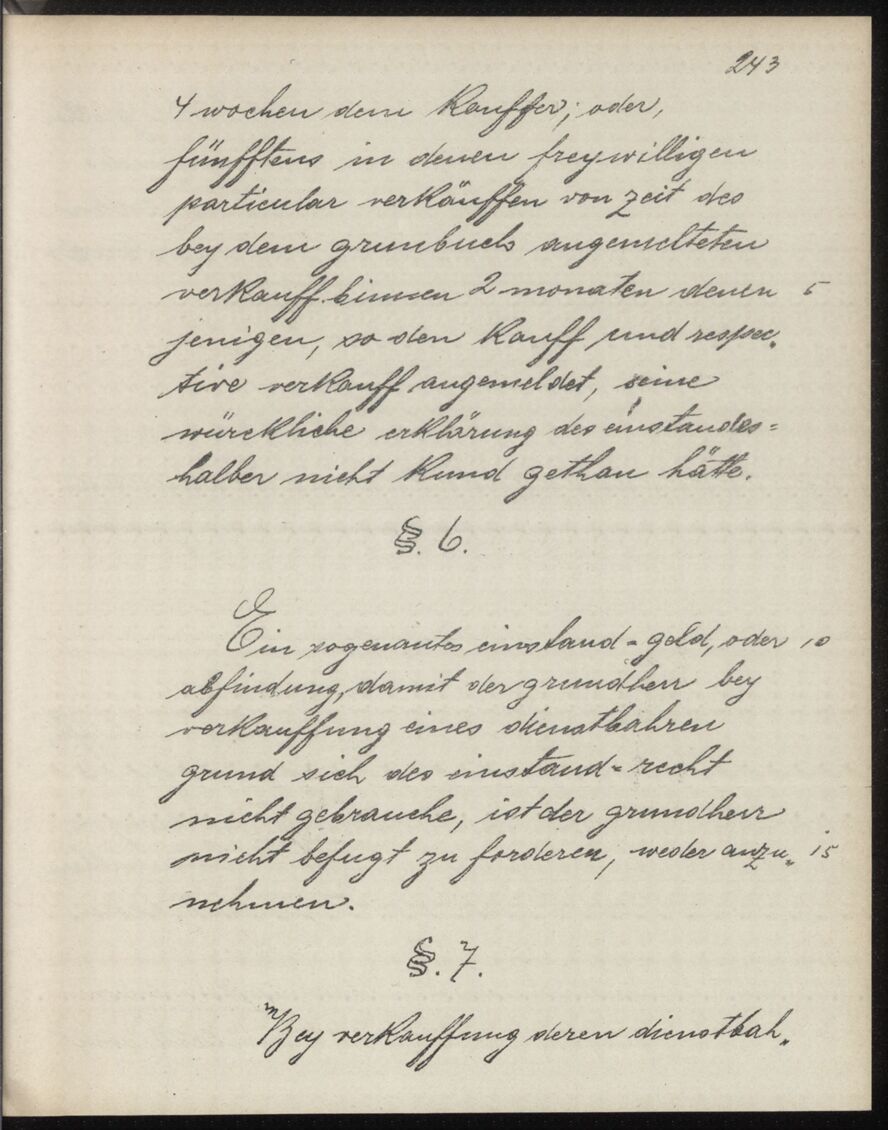 243
4 wochen dem Kauffer; oder,
fünfftens in denen freywilligen
particular verkäuffen von zeit des
bey dem grunbuch angemelteten
verkauff binnen 2 monaten denen 5
jenigen, so den Kauff und respec„
tive verkauff angemeldet, seine
würckliche erklärung des einstandes=
halber nicht Kund gethan hätte.
§. 6.
Ein sogenantes einstand=geld, oder 10
abfindung, damit der grundherr bey
verkauffung eines dienstbahren
grund sich des einstand=recht
nicht gebrauche, ist der grundherr
nicht befugt zu forderen, weder anzu„ 15
nehmen.
§. 7.
Bey verkauffung deren dienstbah„